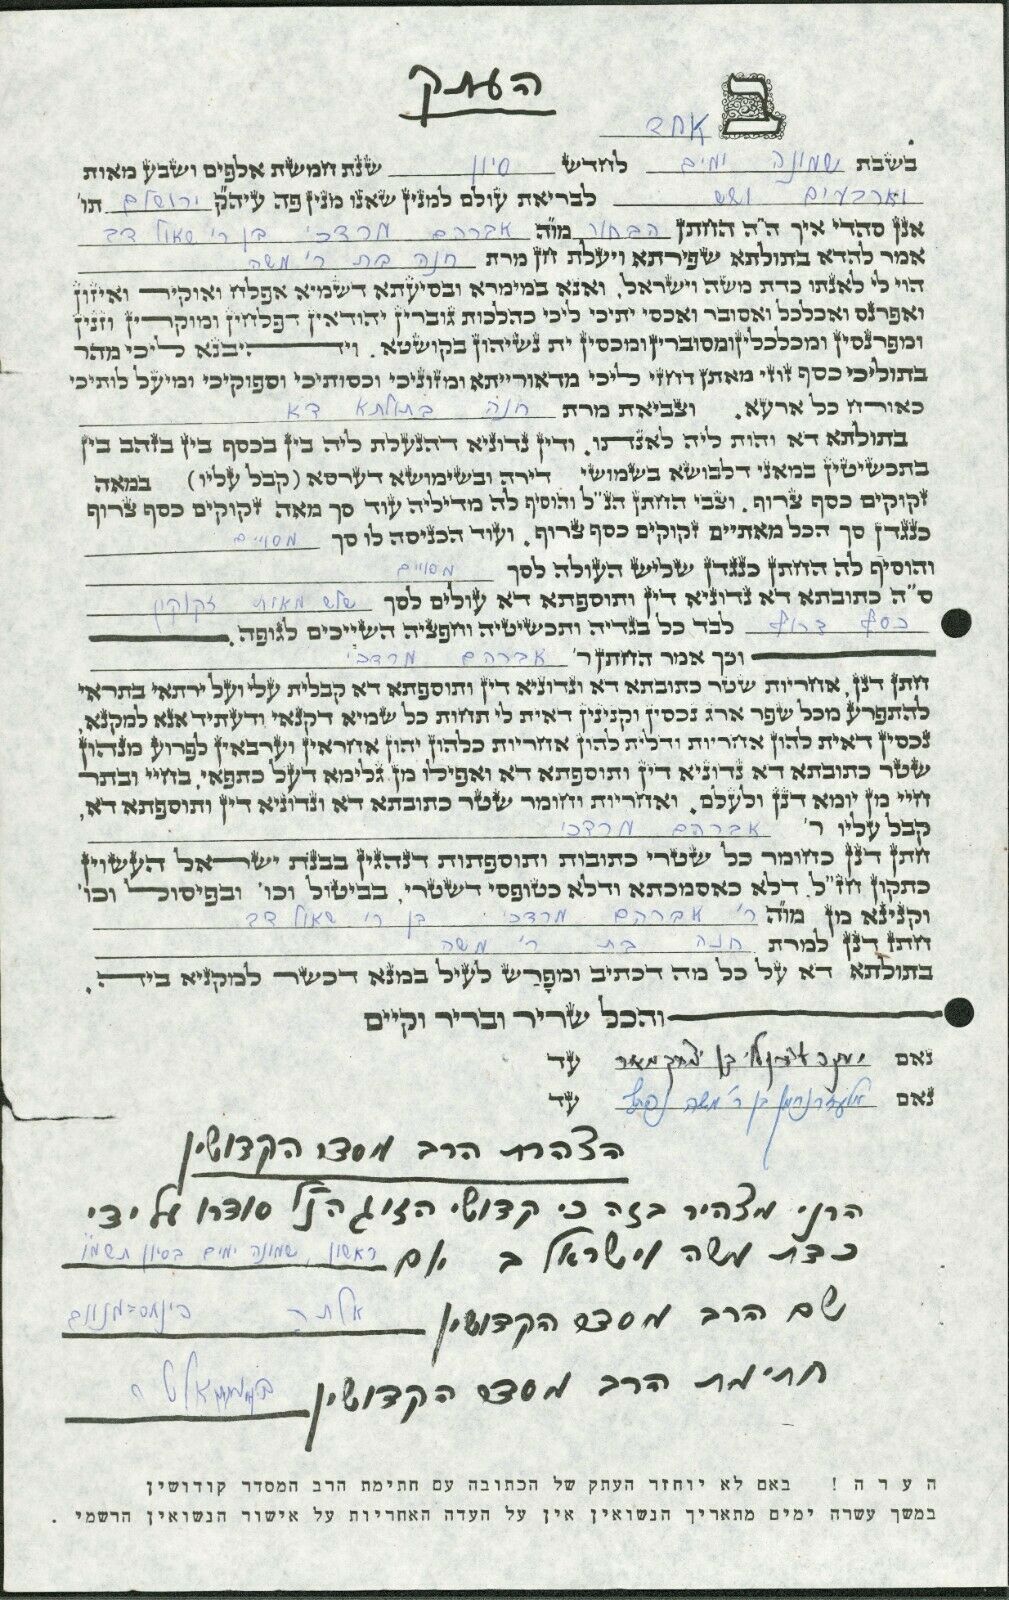 העתק
ב אחד
בשבת שמונה ימים לחדש סיון שנת חמשת אלפים ושבע מאות
וארבעים ושש לבריאת עולם למנין שאנו מנין פה עיה"ק ירושלם תו'
אנן סהדי איך ה"ה החתן הבחור מו"ה אברהם מרדכי בן ר' שאול דב
אמר להדא בתולתא שפירתא ויעלת חן מרת חנה בת ר' משה
הוי לי לאנתו כדת משה וישראל. ואנא במימרא ובסיעתא דשמיא אפלח ואוקיר ואיזון
ואפרנס ואכלכל ואסובר ואכסי יתיכי ליכי כהלכות גוברין יהודאין דפלחין ומוקרין וזנין
ומפרנסין ומכלכלין ומסוברין ומכסין ית נשיהון בקושטא. ויהיבנא ליכי מהר
בתוליכי כסף זוזי מאתן דחזי ליכי מדאורייתא ומזוניכי וכסותיכי וספוקיכי ומיעל לותיכי
כאורח כל ארעא. וצביאת מרת חנה בתולתא דא
בתולתא דא והות ליה לאנתו. ודין נדוניא דהנעלת ליה בין בכסף בין בזהב בין
בתכשיטין במאני דלבושא בשמושי דירה ובשימושא דערסא (קבל עליו) במאה
זקוקים כסף צרוף. וצבי החתן הנ"ל והוסיף לה מדיליה עוד סך מאה זקוקים כסף צרוף
כנגדן סך הכל מאתיים זקוקים כסף צרוף. ועוד הכניסה לו סך מסויים
והוסיף לה החתן כנגדן שליש העולה לסך מסויים
ס"ה כתובתא דא נדוניא דין ותוספתא דא עולים לסך שלש מאות זקוקין
כסף צרוף לבד כל בגדיה ותכשיטיה וחפציה השייכים לגופה.
וכך אמר החתן ר' אברהם מרדכי
חתן דנן, אחריות שטר כתובתא דא ונדוניא דין ותוספתא דא קבלית עלי ועל ירתאי בתראי
להתפרע מכל שפר ארג נכסין וקנינין דאית לי תחות כל שמיא דקנאי ודעתיד אנא למקנא,
נכסין דאית להון אחריות ודלית להון אחריות כלהון יהון אחראין וערבאין לפרוע מנהון
שטר כתובתא דא נדוניא דין ותוספתא דא ואפילו מן גלימא דעל כתפאי, בחיי ובתר
חיי מן יומא דנן ולעלם. ואחריות וחומר שטר כתובתא דא ונדוניא דין ותוספתא דא,
קבל עליו ר' אברהם מרדכי
חתן דנן כחומר כל שטרי כתובות ותוספתות דנהגין בבנת ישראל העשוין
כתקון חז"ל. דלא כאסמכתא ודלא כטופסי דשטרי, בביטול וכו' ובפיסול וכו'
וקנינא מן מו"ה ר' אברהם מרדכי בן ר' שאול דב
חתן דנן למרת חנה בת ר' משה
בתולתא דא על כל מה דכתיב ומפָרַש לעיל במנא דכשר למקניא ביה.
והכל שריר ובריר וקיים
נאם עד
נאם בן ר' משה עד
הצהרת הרב מסדר הקדושין
הרני מצהיר בזה כי קדושי הזוג הנ"ל סודרו על ידי
כדת משה וישראל ב ראשון, שמונה ימים בסיון תשמ"ו
שם הרב מסדר הקדושין
חתימת הרב מסדר הקדושין
הערה! באם לא יוחזר העתק של הכתובה עם חתימת הרב המסדר קודושין
במשך עשרה ימים מתאריך הנשואין אין על העדה האחריות על אישור הנשואין הרשמי.